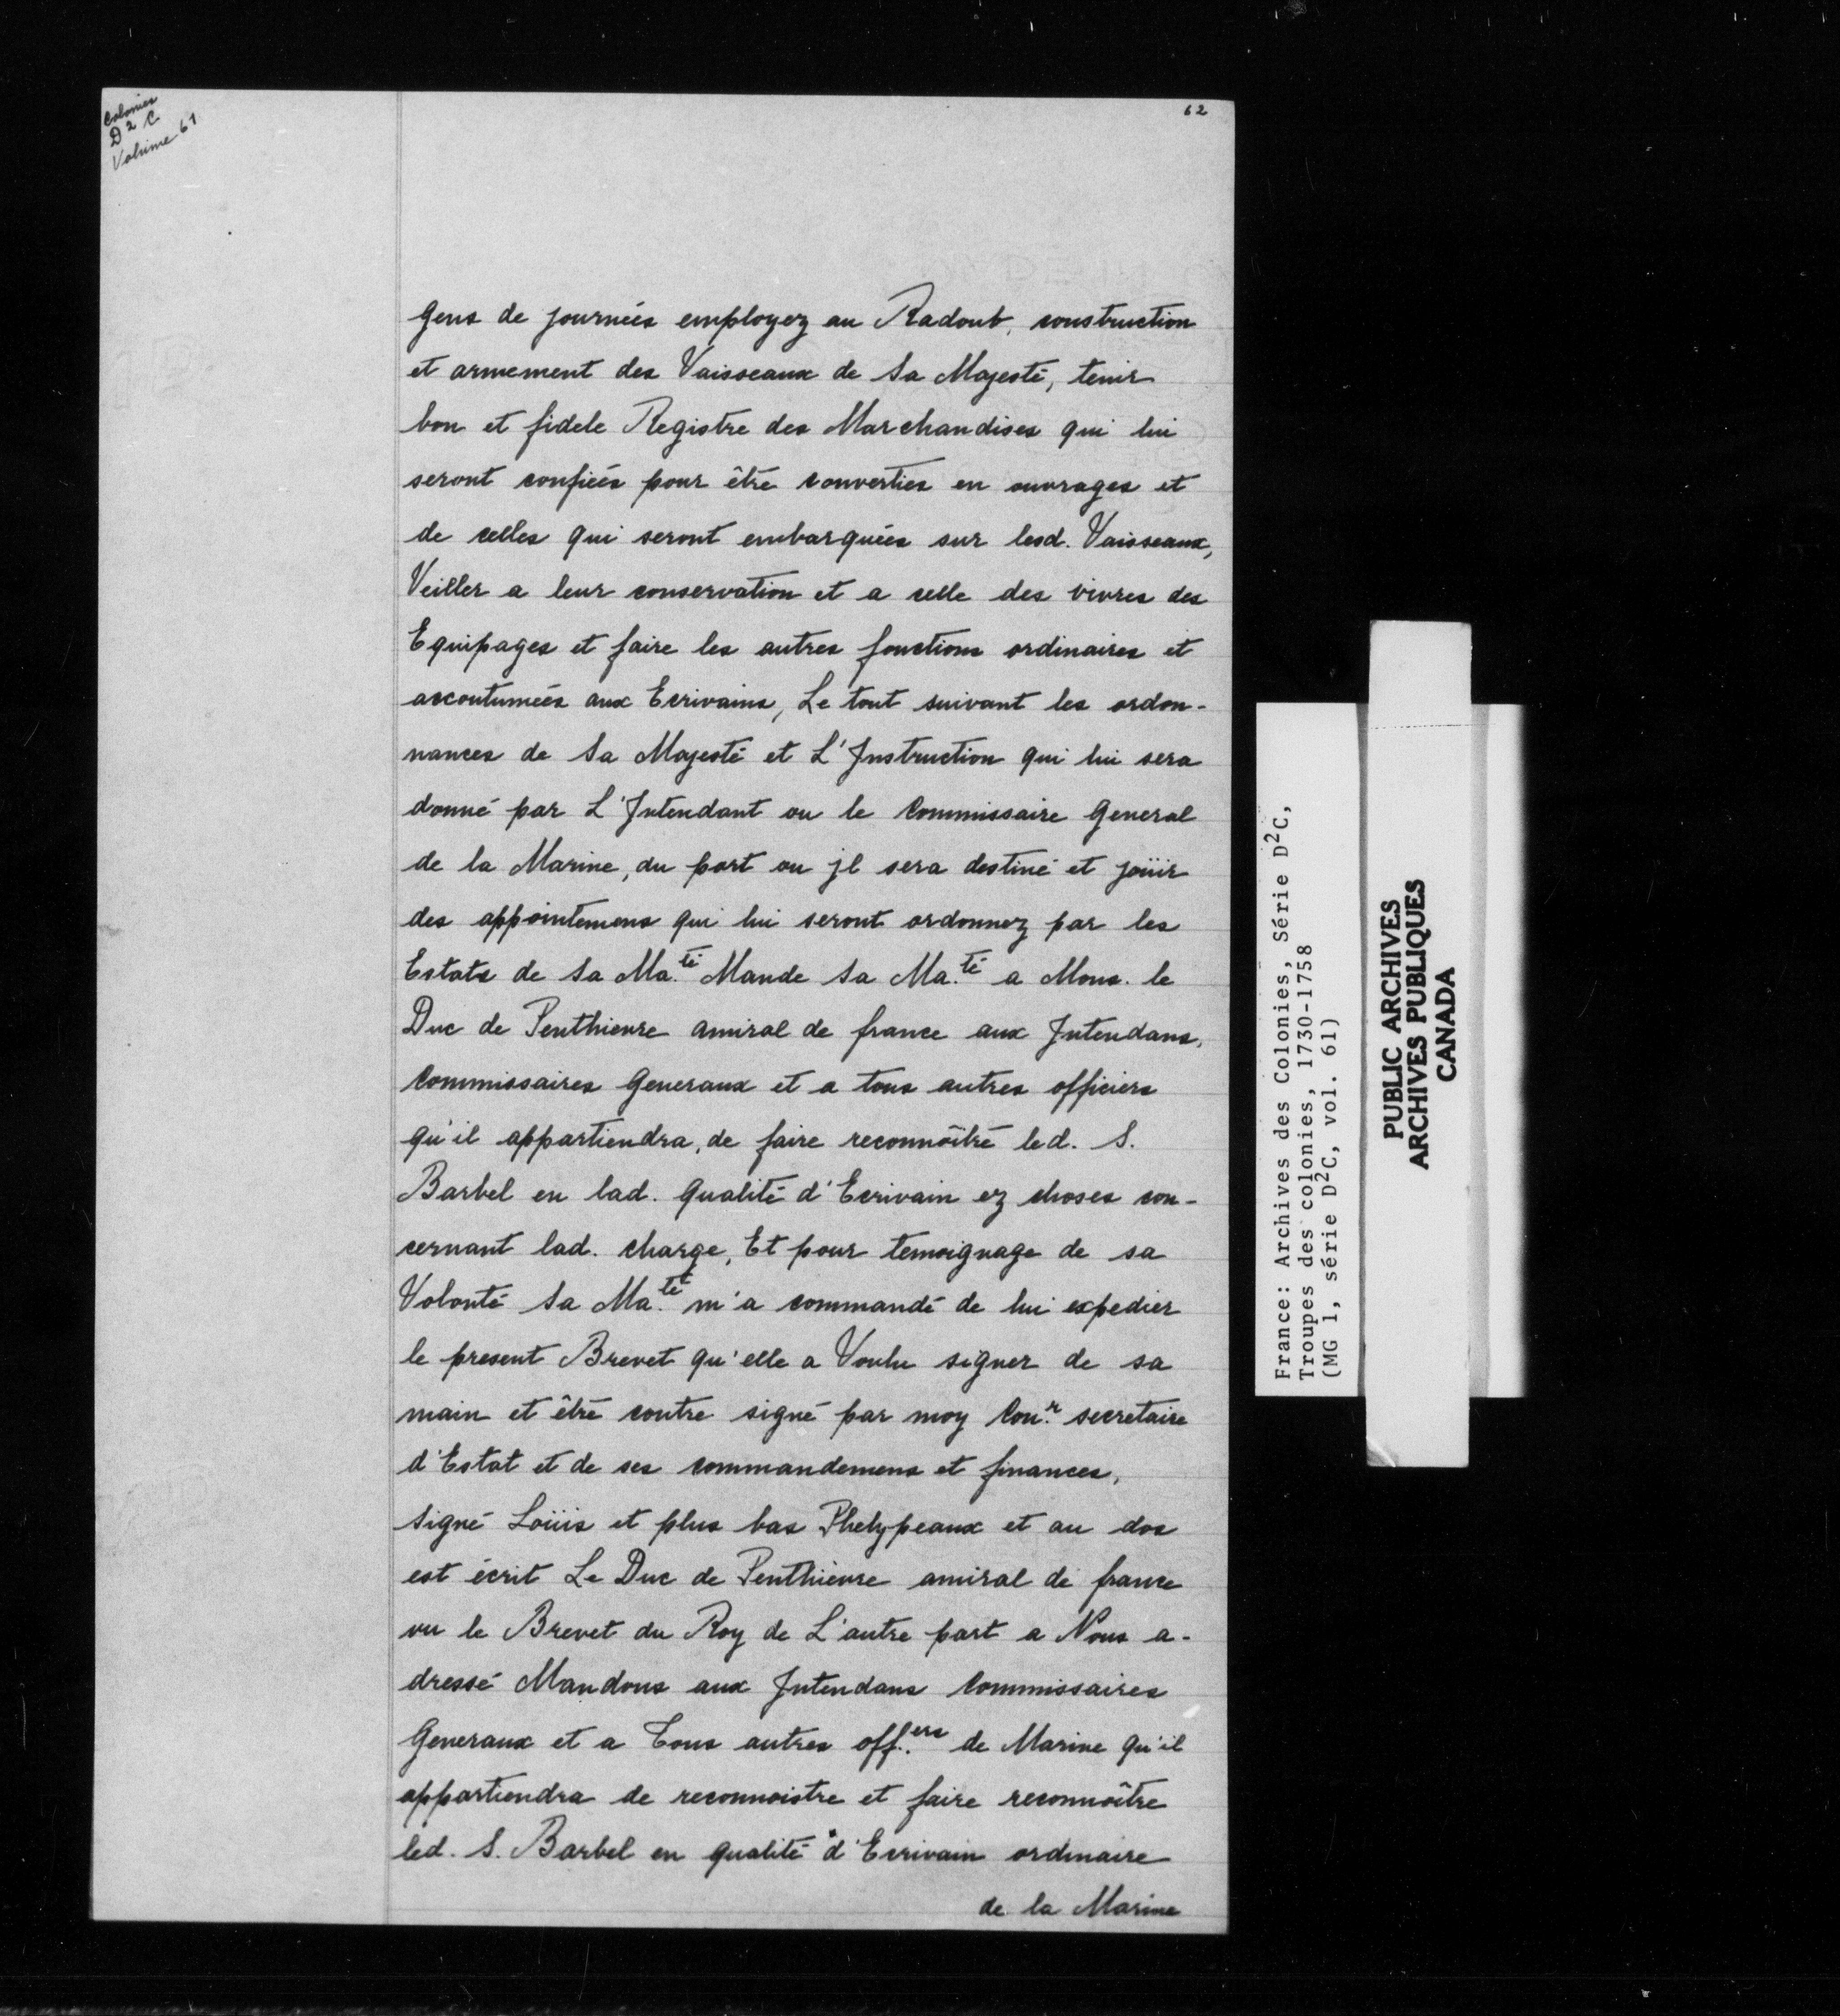 Colonies
D2C
Volume 61
62
gens de journées employez au Radoub, construction
et armement des Vaisseaux de Sa Majesté, tenir
bon et fidele Registre des Marchandises qui lui
seront confiées pour être converties en ouvrages et
de celles qui seront embarquées sur lesd. Vaisseaux,
Veiller a leur conservation et a celle des vivres des
Equipages et faire les autres fonctions ordinaires et
accoutumées aux Ecrivains, Le tout suivant les ordon-
nances de Sa Majesté et L'Instruction qui lui sera
donné par L'Intendant ou le Commissaire General
de la Marine, du port ou jl sera destiné et joüir
des appointemens qui lui seront ordonnez par les
Estats de Sa Ma.té Mande Sa Ma.té a Mons. le
Duc de Penthievre amiral de france aux Intendans,
Commissaires Generaux et a tous autres officiers
qu'il appartiendra, de faire reconnoître led. S.
Barbel en lad. qualité d'Ecrivain ez choses con-
cernant lad. charge, Et pour temoignage de sa
Volonté Sa Ma.té m'a commandé de lui expedier
le present Brevet qu'elle a Voulu signer de sa
main et être contre signé par moy Con.r secretaire
d'Estat et de ses commandemens et finances,
Signé Loüis et plus bas Phelypeaux et au dos
est écrit Le Duc de Penthièvre amiral de france
vu le Brevet du Roy de L'autre part a Nous a-
dressé Mandons aux Intendans Commissaires
Generaux et a Tous autres off.ers de Marine qu'il
appartiendra de reconnoistre et faire reconnoître
led. S. Barbel en qualité d'Ecrivain ordinaire
de la Marine
France: Archives des Colonies, Série D2C,
Troupes des colonies, 1730-1758
(MG 1, série D2C, vol. 61)
PUBLIC ARCHIVES
ARCHIVES PUBLIQUES
CANADA